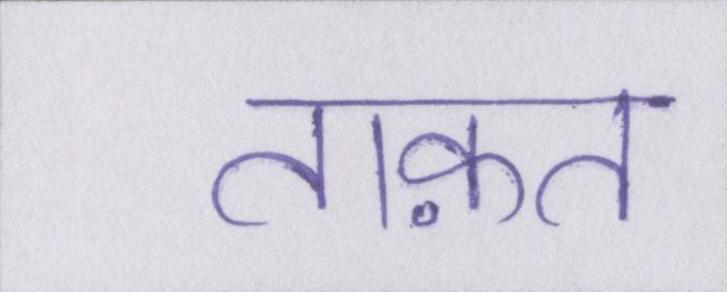 ताक़त